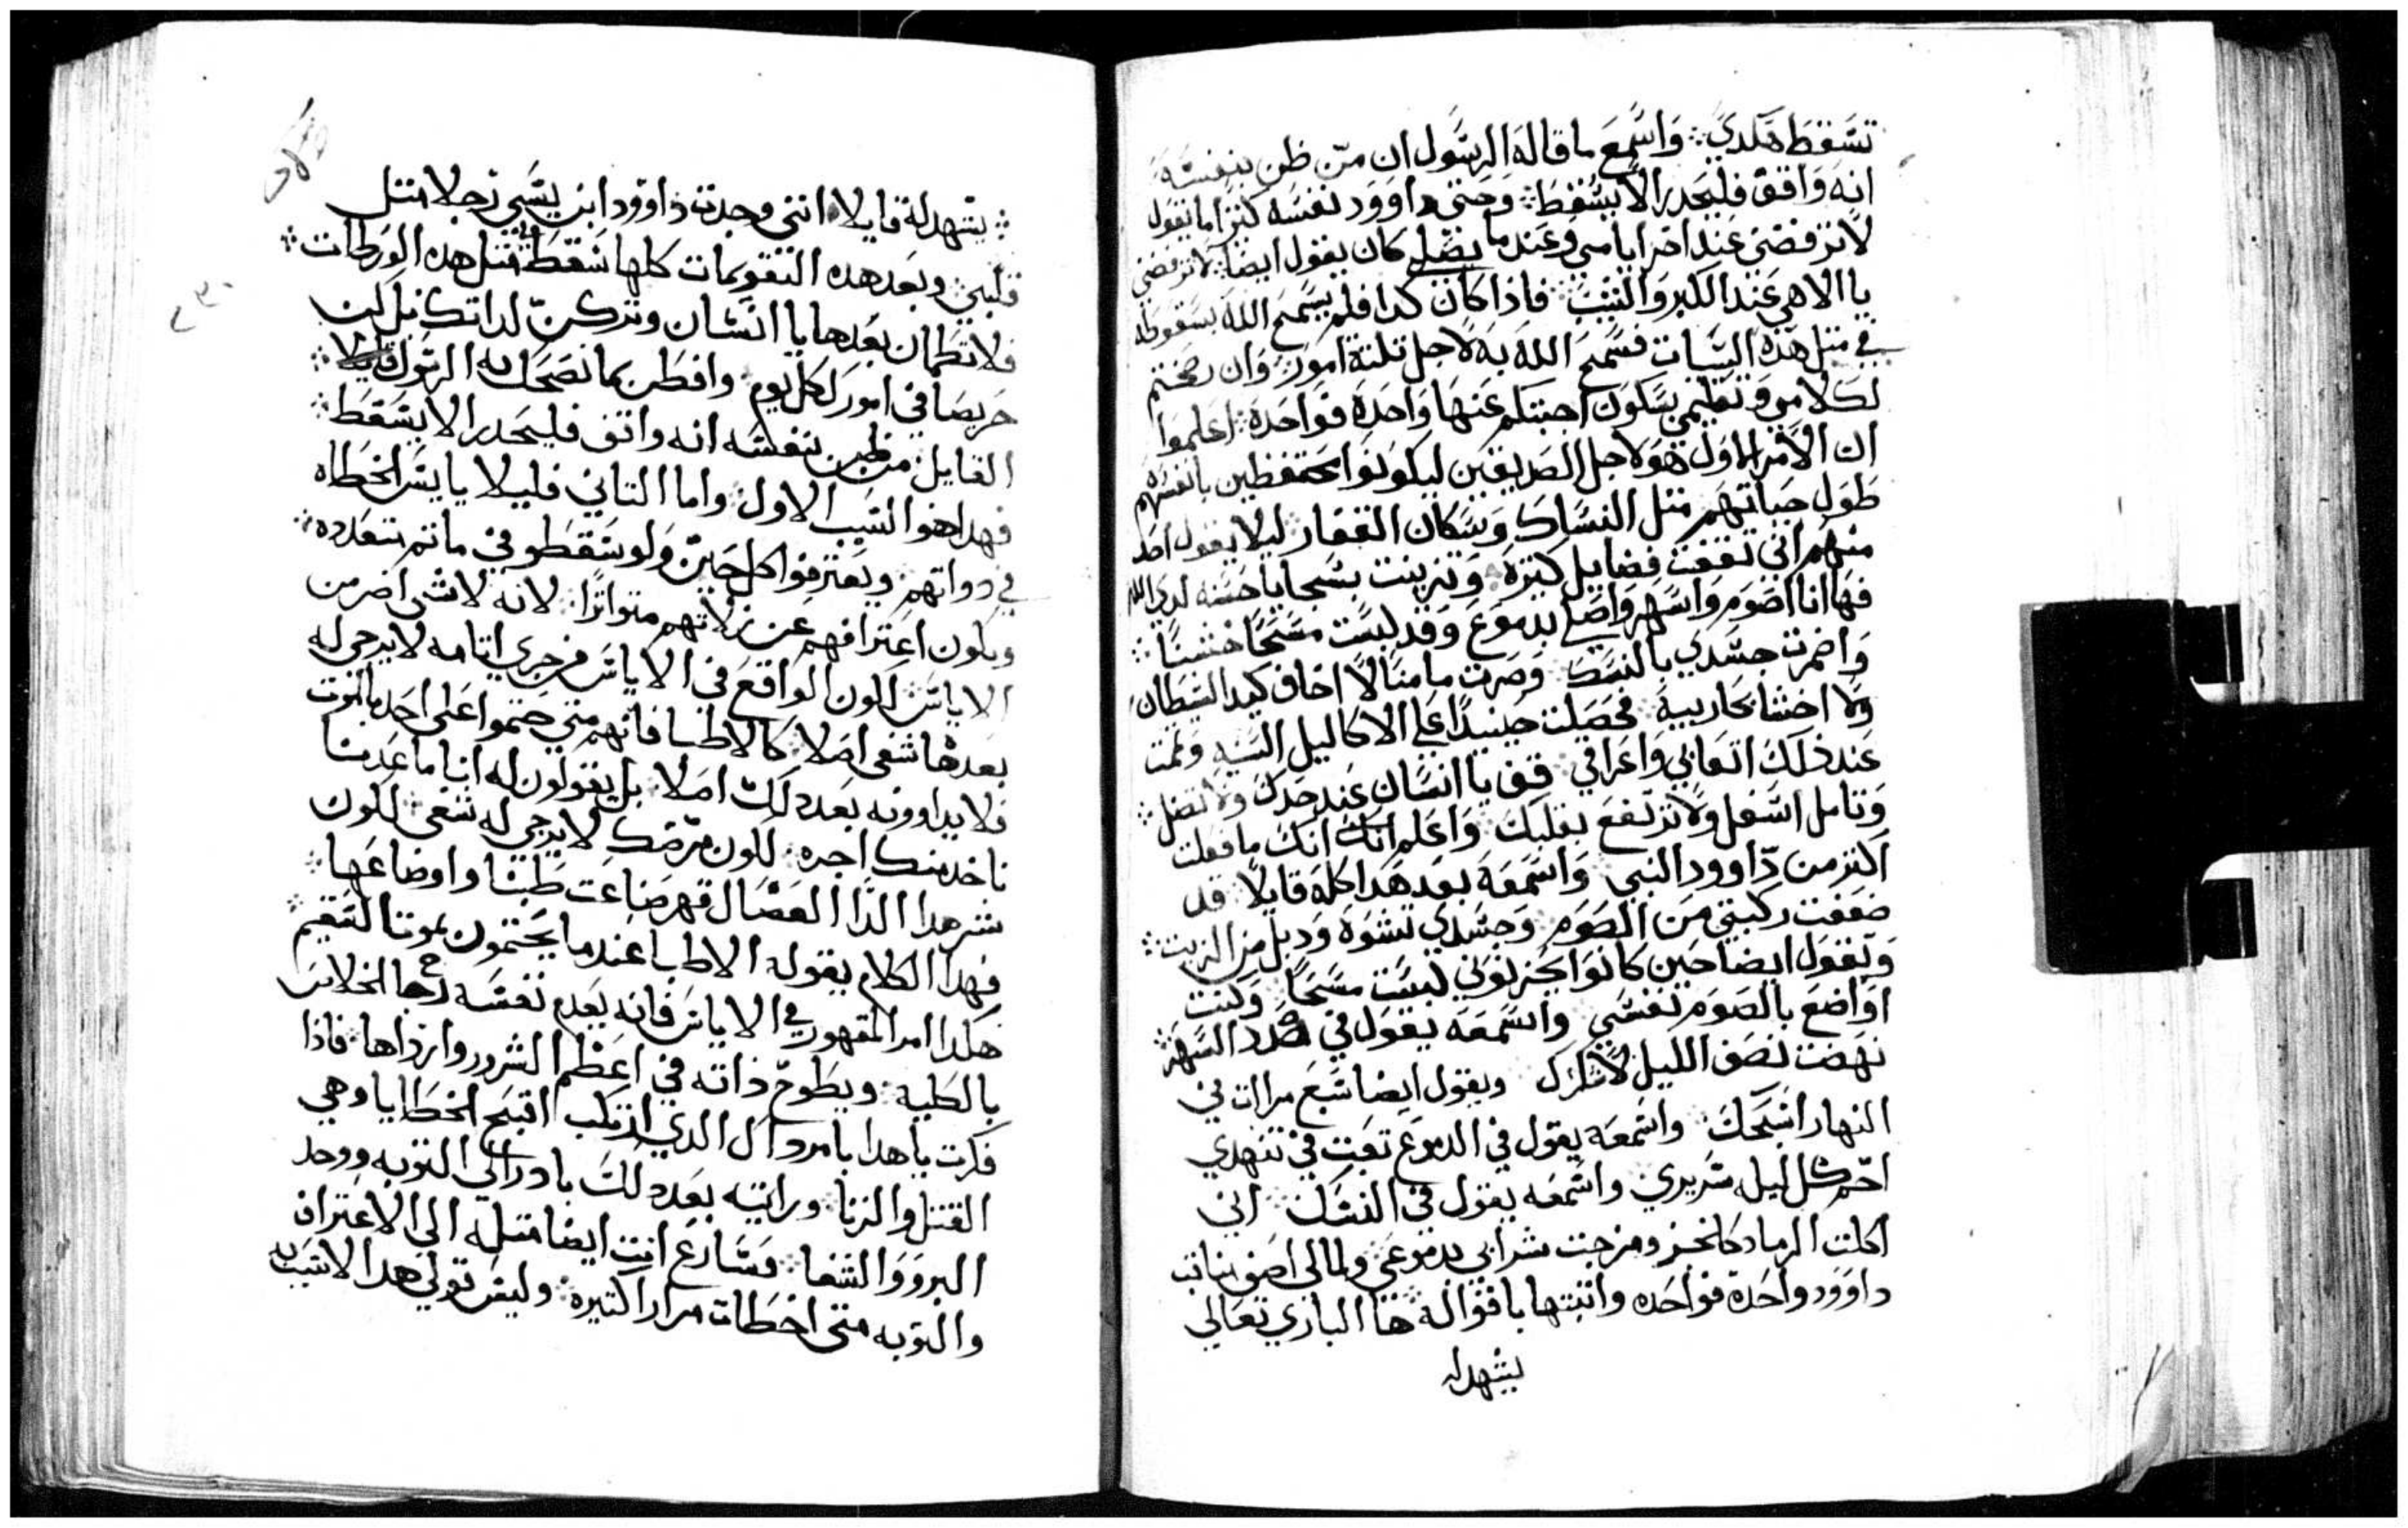 تسقط هكدي ∴ واسمع ما قاله الرسول ان من ظن بنفسه
انه واقف فليحدر الا يسقط ∴ وحتى داوود نفسه كتيرا ما يقول
لا ترفضني عند اخر ايامي وعندما يضلي كان يقول ايضا لا ترفضني
يا الاهي عند الكبر والشيب ∴ فاذا كان كدا فلم يسمح الله بسقوطه
في متل هذه السيات فسمح الله به لاجل تلتة امور وان رصختم
لكلامي وتعليمي بسكون احبتكم عنها واحدة فواحدة اعلموا
ان الامر الاول هو لاجل الصديقين ليكونوا محتفظين بانفسهم
طول حياتهم متل النساك وسكان القفار ليلا يقول احد
منهم اني تقفت فضايل كتيرة وتزينت بسجايا حسنه لدي الله
فها انا اصوم واسهر واصلي بدموع وقد لبست مسحا خشنا ∴
واضمرت جسدي بالنسك وصرت مامنا لا اخاف كيد الشيطان
ولا اخشا محاربيه فحصلت حينيدا علي الاكاليل السنيه وتمت
عند ذلك اتعابي واعراقي قف يا انسان عند حدك ولا تضل ∴
وتامل اسفل ولا ترتفع بقلبك واعلم انك انك ما فعلت
اكتر من داوود النبي واسمعه بعد هدا كله قايلا قد
ضعفت ركبتي من الصوم وجسدي تشوه ودبل من الزيت ∴
ويقول ايضا حين كانوا يحزنوني لبست مسحا وكنت
اواضع بالصوم نفسي واسمعه يقول في صدد السهر ∴
نهضت نصف الليل لاشكرك ويقول ايضا سبع مرات في
النهار اسبحك واسمعه يقول في الدموع تعبت في تنهدي
احم كل ليله سريري واسمعه يقول في النسك اني
اكلت الرماد كالخبز ومزجت شرابي بدموعي ولمالي اصف مناقب
داوود واحدة فواحده واتبتها باقواله ها الباري تعالي
يشهد له
∴ يشهد له قايلا انني وجدت داوود ابن يسي رجلا متل
قلبي وبعد هده التقويمات كلها سقط في متل هده الورطات ∴
فلا تطمان بعدها يا انسان وتركن لداتك بل كن
حريصا في امورك كل يوم وافطن بما نصحك به الرسول قايلا ∴
القايل من ظن بنفسه انه واقف فليحدر الا يسقط ∴
فهدا هو السبب الاول واما التاني فليلا يايس الخطاه
في دواتهم ويعترفوا كل حين ولو سقطو في ماتم متعدده ∴
ويكون اعترافهم عن زلاتهم متواترا لانه لا شي اضر من
الاياس لكون الواقع في الاياس من جري اتامه لا يرجى له
بعدها شفي اصلا كالاطبا فانهم متي حتموا على احد بالموت
فلا يداوونه بعد دلك اصلا بل يقولون له اننا ما عدمنا
ناخد منك اجره لكون مرضك لا يرجى له شفى لكون
شر هدا الدا العضال قهر صناعت طبنا واوضاعها ∴
فهدا الكلام يقوله الاطبا عندما يحتمون بموت السقيم
هكدا امر المقهور في الاياس فانه يعدم نفسه رجا الخلاص
بالكليه ويطوح ذاته في اعظم الشرور وارداها فاذا
فكرت يا هدا بامر داك الدي ارتكب اقبح الخطايا وهي
القتل والزنا ورايته بعد دلك بادر الى التوبه ووجد
البرو والشفا فسارع انت ايضا متله الى الاعتراف
والتوبه متي اخطات مرارا كتيره وليس قولي هدا الا تنبيه